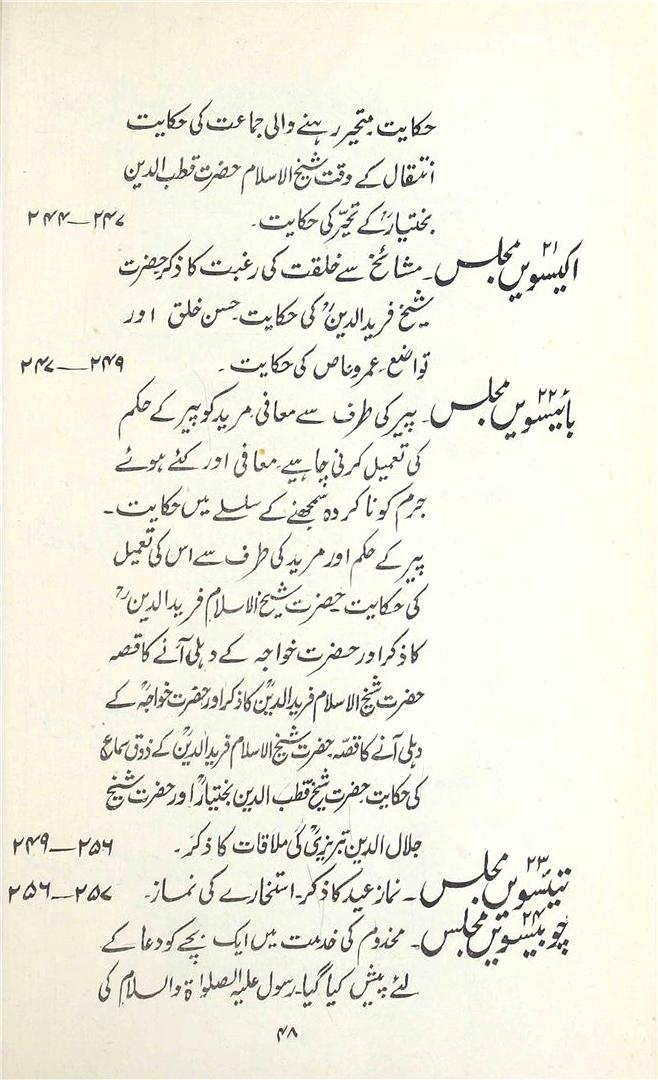 حکایت۔ متحیر رہنے والی جماعت کی حکایت
انتقال کے وقت شیخ الاسلام حضرت قطب الدین
بختیارؒ کے تحیّر کی حکایت۔ ۲۴۷—۲۴۴
اکیسویں ۲۱ مجلس۔ مشائخ سے خلقت کی رغبت کا ذکر حضرت
شیخ فرید الدینؒ کی حکایت۔ حسن خلق اور
تواضع۔ عمرو عاص کی حکایت۔ ۲۴۹—۲۴۷
بائیسویں ۲۲ مجلس۔ پیر کی طرف سے معافی۔ مرید کو پیر کے حکم
کی تعمیل کرنی چاہیے۔ معافی اور کئے ہوئے
جرم کو نا کردہ سمجھنے کے سلسلے میں حکایت۔
پیر کے حکم اور مرید کی طرف سے اس کی تعمیل
کی حکایت۔ حضرت شیخ الاسلام فرید الدینؒ
کا ذکر اور حضرت خواجہ کے دہلی آنے کا قصہ
حضرت شیخ الاسلام فرید الدینؒ کا ذکر اور حضرت خواجہؒ کے
دہلی آنے کا قصّہ۔ حضرت شیخ الاسلام فرید الدینؒ کے ذوق سماع
کی حکایت۔ حضرت شیخ قطب الدین بختیارؒ اور حضرت شیخ
جلال الدین تبریزیؒ کی ملاقات کا ذکر۔ ۲۵۶—۲۴۹
تیئسویں ۲۳ مجلس۔ نماز عید کا ذکر۔ استخارے کی نماز۔ ۲۵۷—۲۵۶
چوبیسویں ۲۴ مجلس۔ مخدوم کی خدمت میں ایک بچے کو دعا کے
لئے پیش کیا گیا۔ رسول علیہ الصلواۃ والسلام کی
۴۸